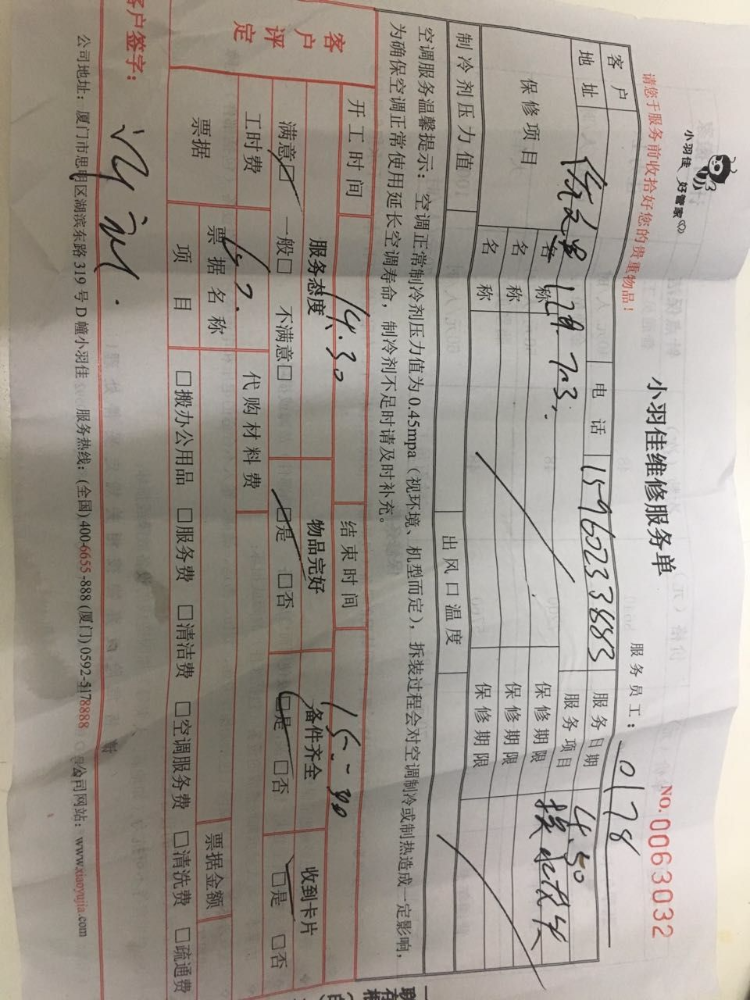 小羽佳 好管家
小羽佳维修服务单
NO. 0063032
请您于服务前收拾好您的贵重物品!
服务员工: 0178
客户 电话 15960233883 服务日期 4.30
地址 129.703. 服务项目 换水龙头
保修项目 名称 保修期限
名称 保修期限
名称 保修期限
制冷剂压力值 出风口温度
空调服务温馨提示:空调正常制冷剂压力值为0.45mpa(视环境、机型而定),拆装过程会对空调制冷或制热造成一定影响,
为确保空调正常使用延长空调寿命,制冷剂不足时请及时补充。
开工时间 14.30 结束时间 15.30
客户评定 服务态度 物品完好 备件齐全 收到卡片
满意□ 一般□ 不满意□ □是 □否 □是 □否 □是 □否
工时费 代购材料费
票据 票据名称 票据金额
项目 □搬办公用品 □服务费 □清洁费 □空调服务费 □清洗费 □疏通费
客户签字:
公司地址:厦门市思明区湖滨东路319号D幢小羽佳 服务热线:(全国)400-6655-888(厦门)0592-5178888 公司网站:www.xiaoyujia.com